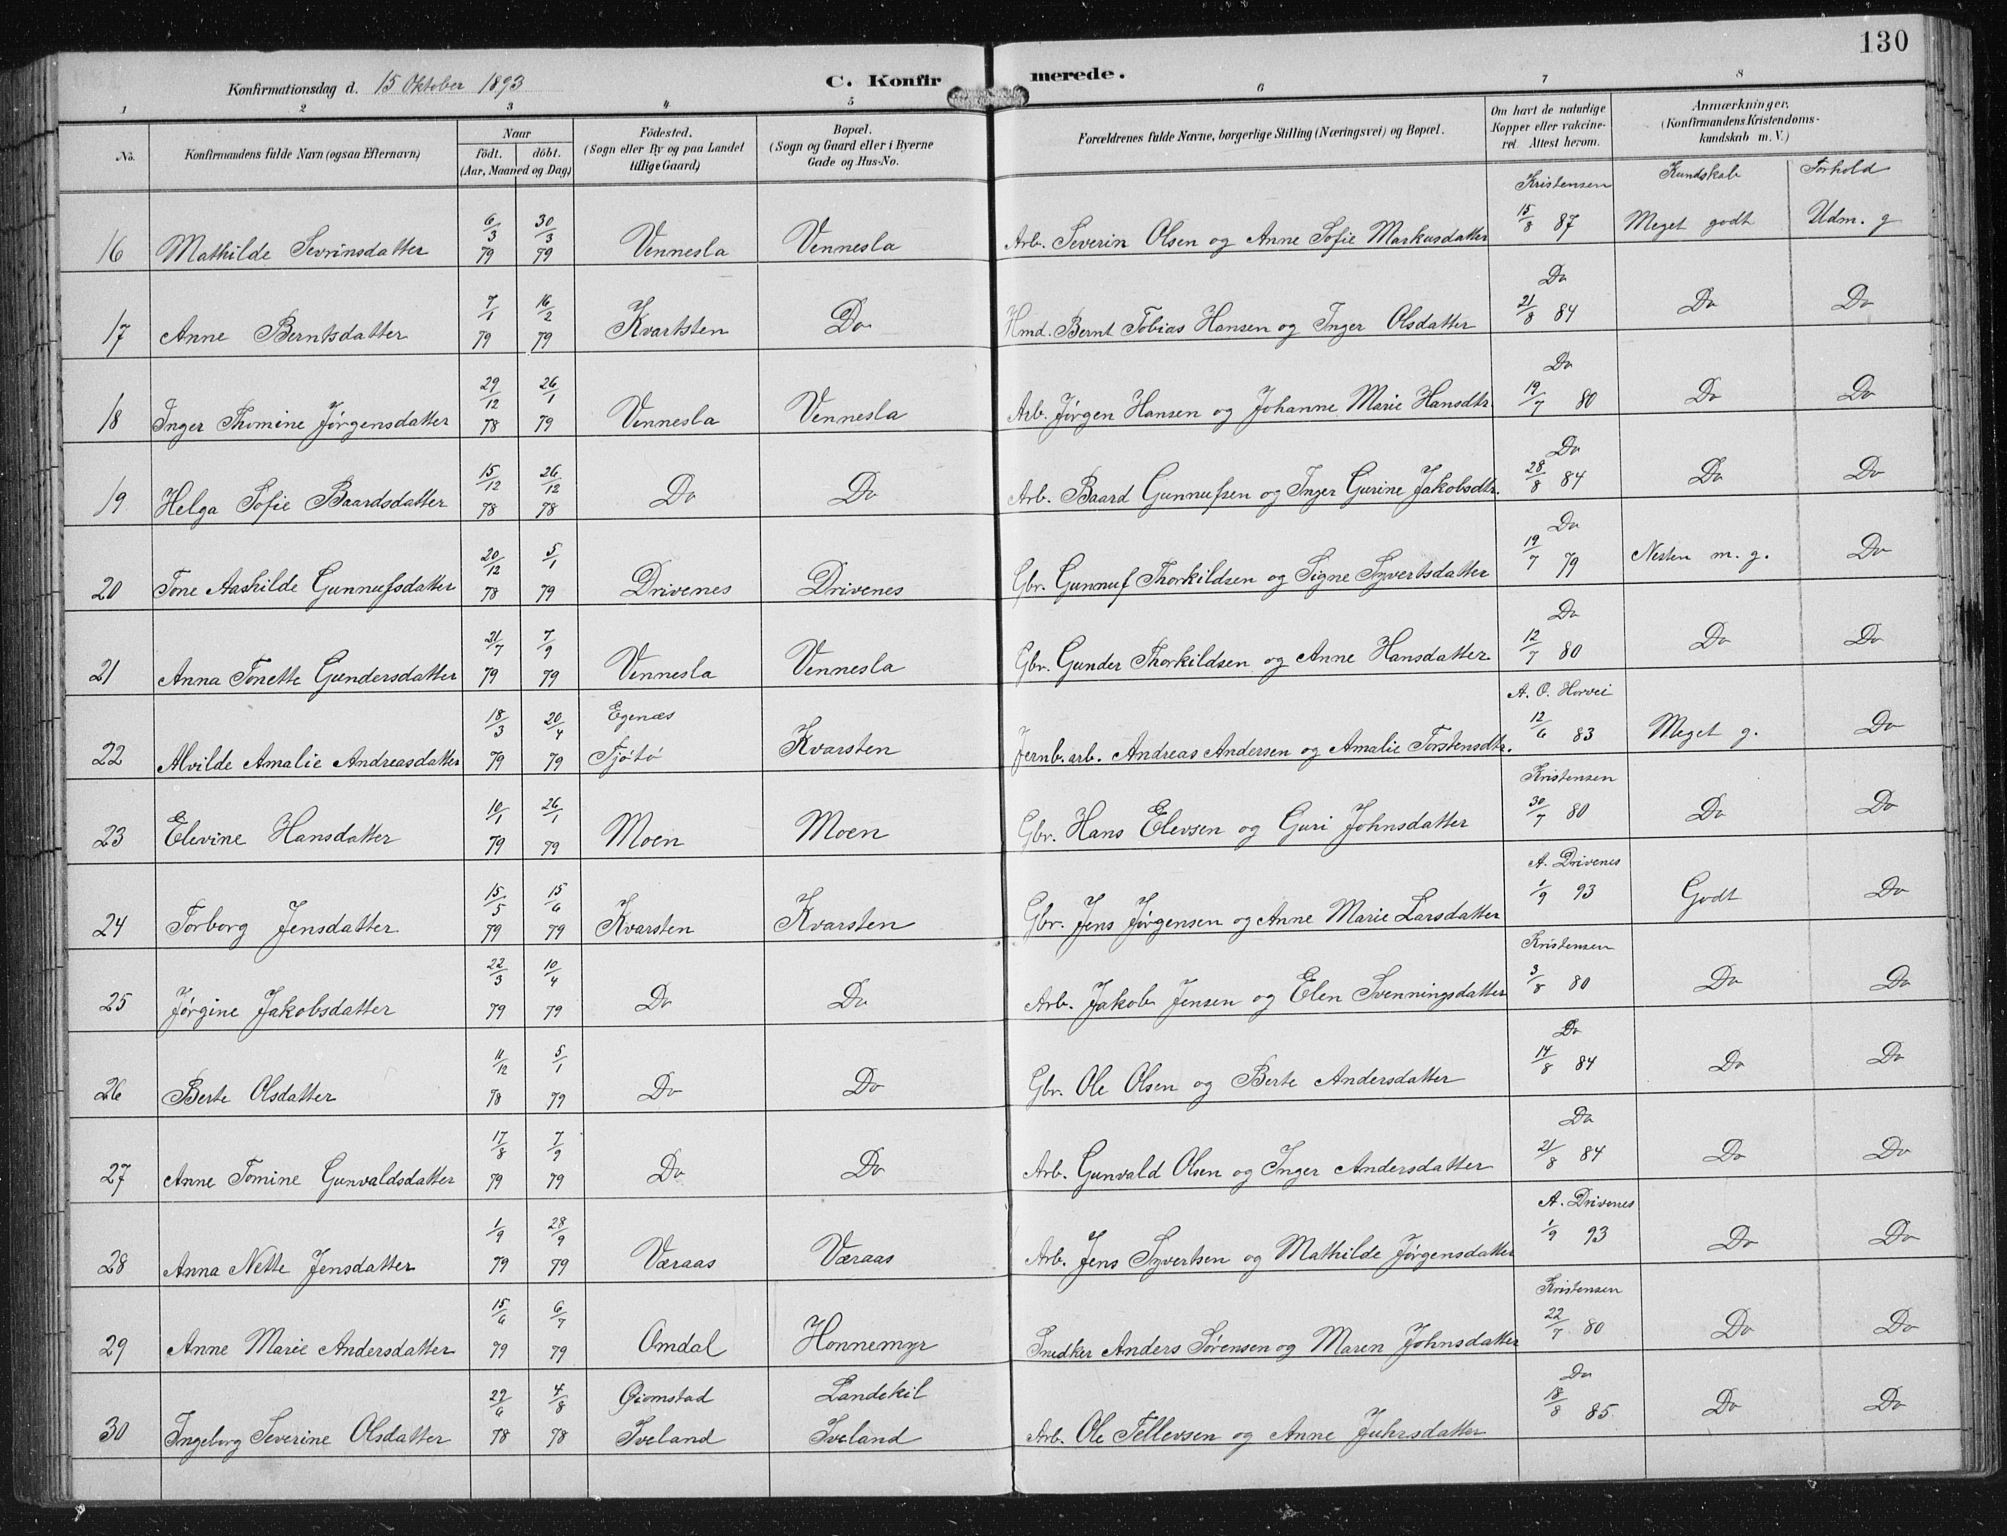 130
Konfirmationsdag d. 15 Oktober 1893 C. Konfirmerede.
1 2 3 4 5 6 7 8
No. Konfirmandens fulde Navn (ogsaa Efternavn) Naar født. døbt. (Aar, Maaned og Dag) Fødested. (Sogn eller By og paa Landet tillige Gaard) Bopæl. (Sogn og Gaard eller i Byerne Gade og Hus-No. Forældrenes fulde Navne, borgerlige Stilling (Næringsvei) og Bopæl. Om havt de naturlige Kopper eller vakcineret. Attest herom. Anmærkninger. (Konfirmandens Kristendomskundskab m. V.)
Kristensen Kundskab Forhold
16 Mathilde Sevrinsdatter 6/3 79 30/3 79 Vennesla Vennesla Arb. Severin Olsen og Anne Sofie Markusdatter 15/8 87 Meget godt Udm. g
17 Anne Berntsdatter 7/1 79 16/2 79 Kvartsten Do Hmd. Bernt Tobias Hansen og Inger Olsdatter Do 21/8 84 Do Do
18 Inger Thomine Jørgensdatter 29/12 78 26/1 79 Vennesla Vennesla Arb. Jørgen Hansen og Johanne Marie Hansdtr. Do 19/7 80 Do Do
19 Helga Sofie Baardsdatter 15/12 78 26/12 78 Do Do Arb. Baard Gunnufsen og Inger Gurine Jakobsdtr. Do 28/8 84 Do Do
20 Tone Aashilde Gunnufsdatter 20/12 78 5/1 79 Drivenes Drivenes Gbr. Gunnuf Thorkildsen og Signe Syvertsdatter Do 19/7 79 Nesten m. g. Do
21 Anna Tonette Gundersdatter 21/7 79 7/9 79 Vennesla Vennesla Gbr. Gunder Thorkildsen og Anne Hansdatter Do 12/7 80 Do Do
22 Alvilde Amalie Andreasdatter 18/3 79 20/4 79 Egenæs Tjøtø Kvarsten Jernb. arb. Andreas Andersen og Amalie Torstensdtr. A. O. Horvei 12/6 83 Meget g. Do
23 Elevine Hansdatter 10/1 79 26/1 79 Moen Moen Gbr. Hans Elevsen og Guri Johnsdatter Kristensen 30/7 80 Do Do
24 Torborg Jensdatter 15/5 79 15/6 79 Kvarsten Kvarsten Gbr. Jens Jørgensen og Anne Marie Larsdatter A. Drivenes 1/9 93 Godt Do
25 Jørgine Jakobsdatter 22/3 79 10/4 79 Do Do Arb. Jakob Jensen og Elen Svenningsdatter Kristensen 3/8 80 Do Do
26 Berte Olsdatter 11/12 78 5/1 79 Do Do Gbr. Ole Olsen og Berte Andersdatter Do 14/8 84 Do Do
27 Anne Tomine Gunvaldsdatter 17/8 79 7/9 79 Do Do Arb. Gunvald Olsen og Inger Andersdatter Do 21/8 84 Do Do
28 Anna Nette Jensdatter 1/9 79 28/9 79 Væraas Væraas Arb. Jens Syvertsen og Mathilde Jørgensdatter A. Drivenes 1/9 93 Do Do
29 Anne Marie Andersdatter 15/6 79 6/7 79 Omdal Honnemyr Snedker Anders Sørensen og Maren Johnsdatter Kristensen 22/7 80 Do Do
30 Ingeborg Severine Olsdatter 22/6 78 4/8 78 Øiomstad Iveland Landekil Iveland Arb. Ole Tellevsen og Anne Juhrsdatter Do 18/8 85. Do Do